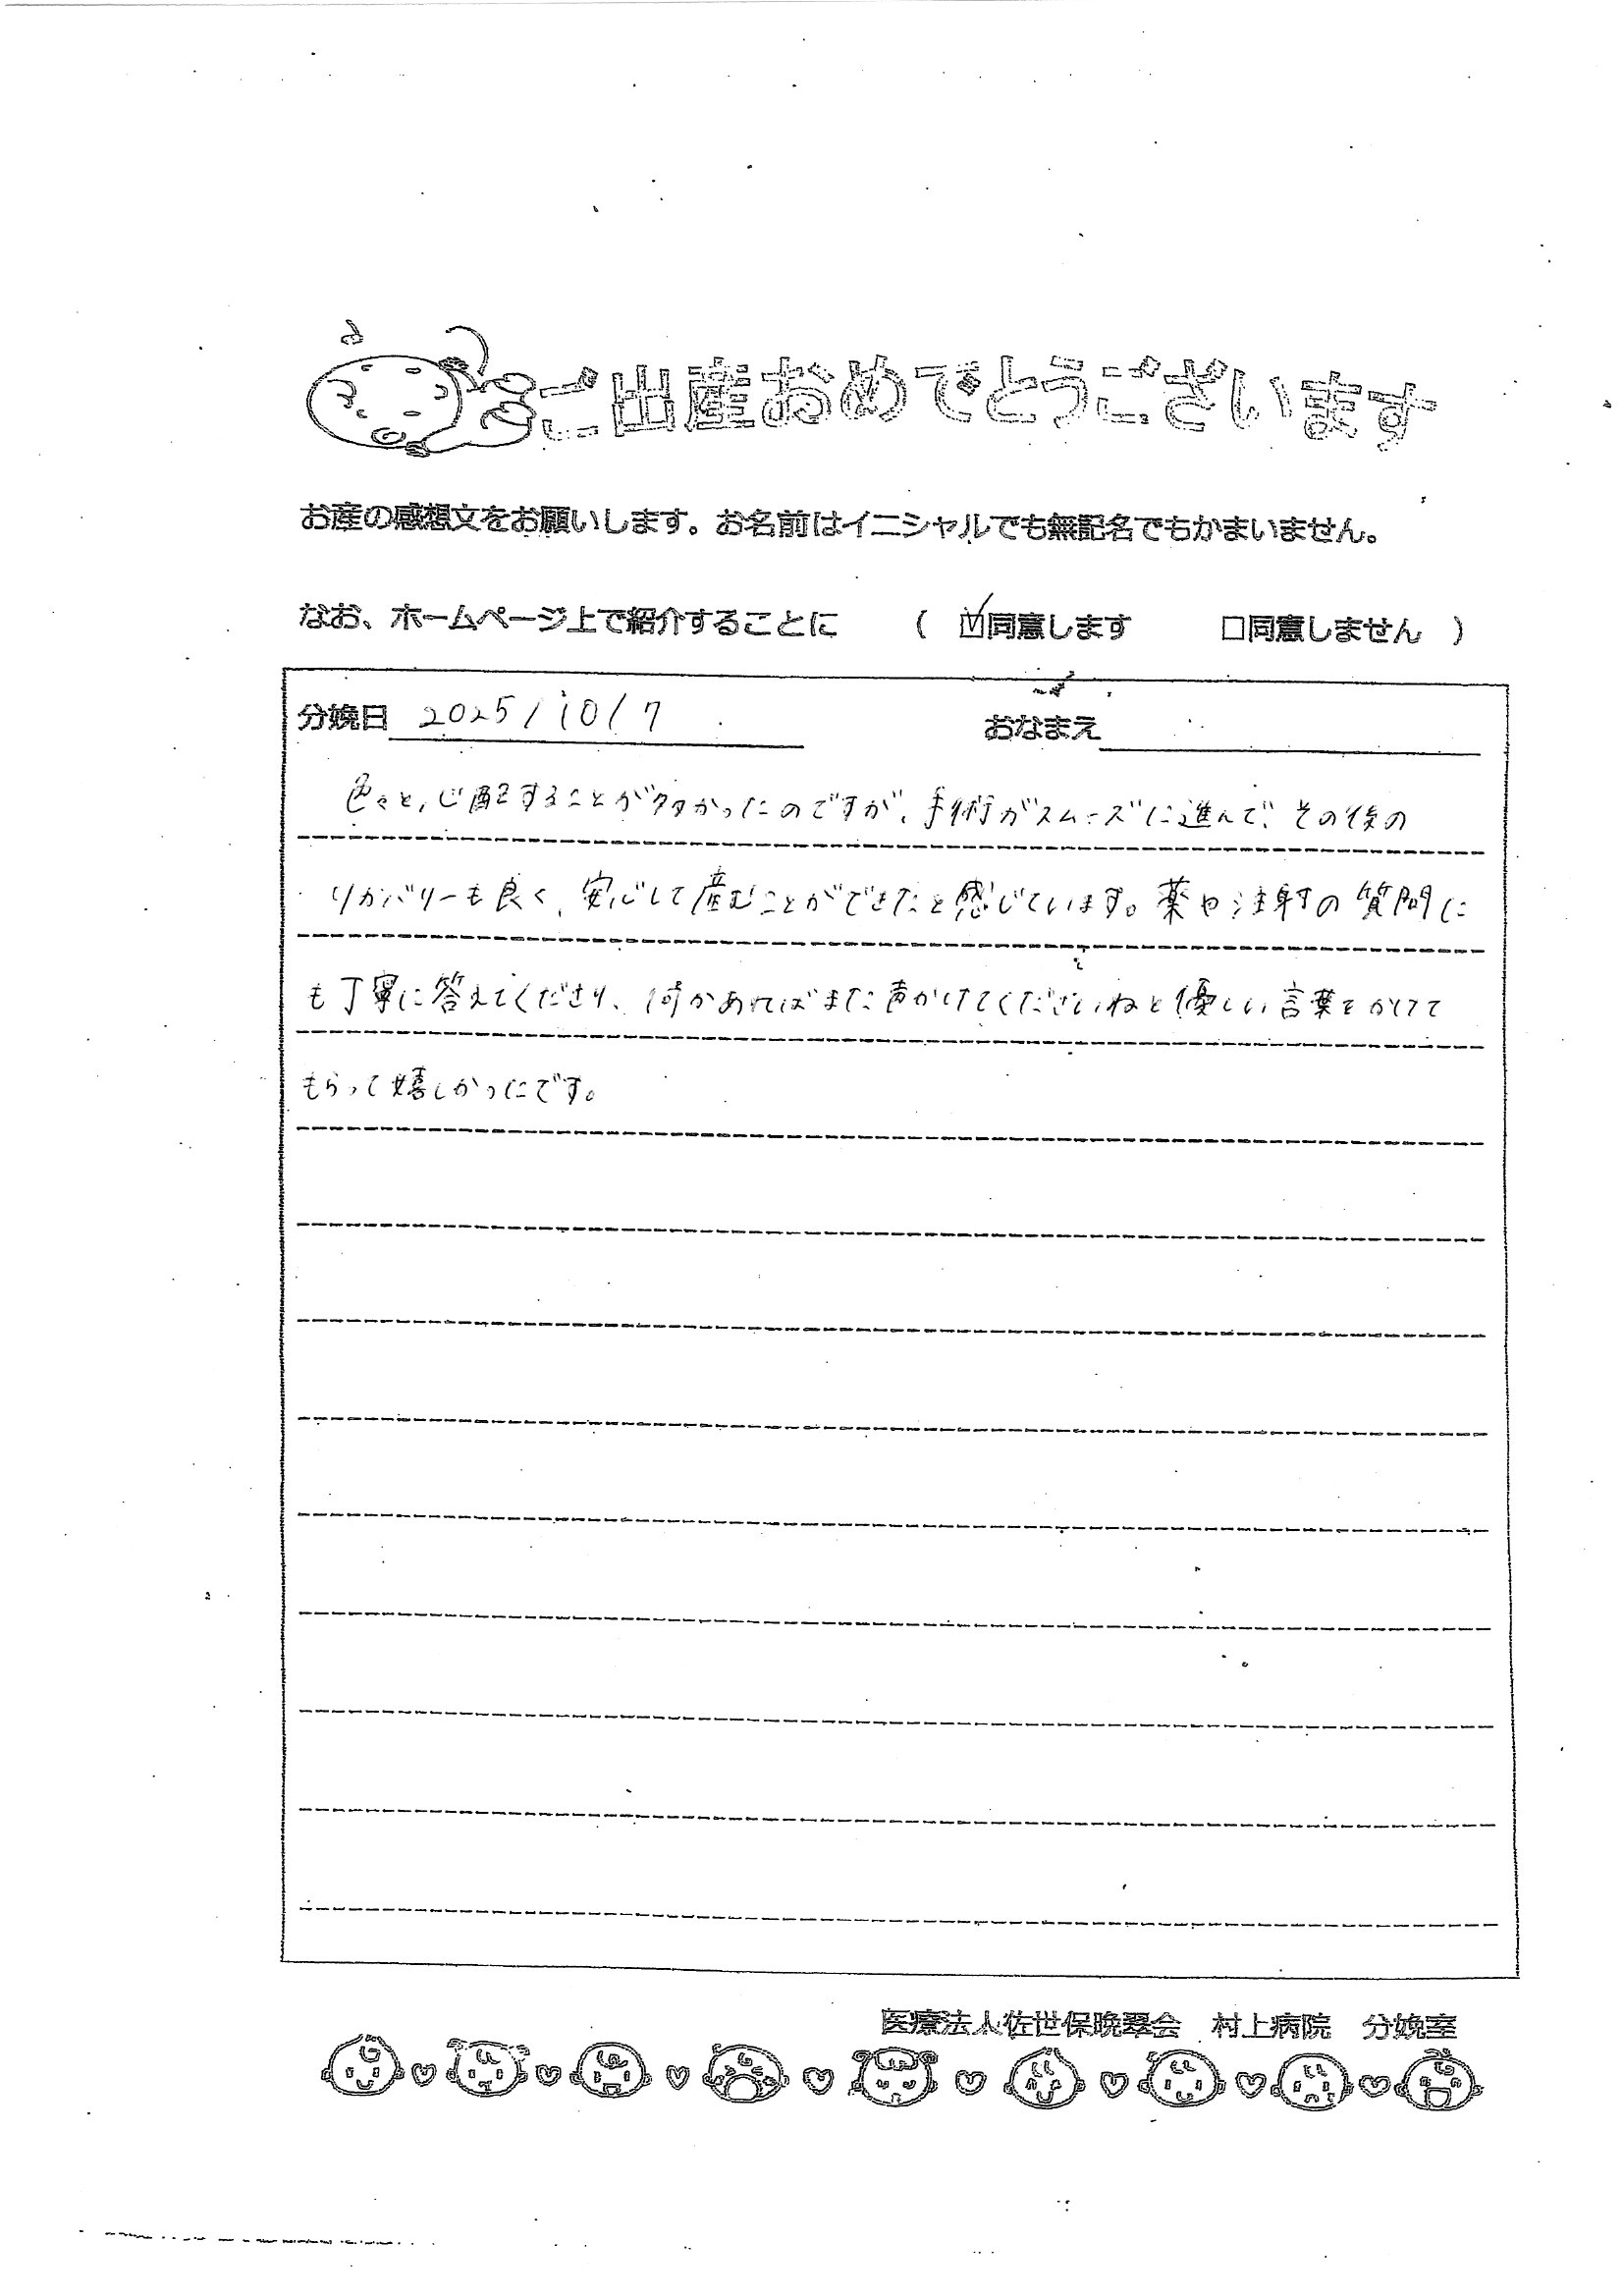 ご出産おめでとうございます
お産の感想文をお願いします。お名前はイニシャルでも無記名でもかまいません。
なお、ホームページ上で紹介することに （ ☑同意します □同意しません ）
分娩日 2025/10/7 おなまえ
色々と心配することが多かったのですが、手術がスムーズに進んで、その後の
リカバリーも良く、安心して産むことができたと感じています。薬や注射の質問に
も丁寧に答えてくださり、何かあればまた声かけてくださいねと優しい言葉をかけて
もらって嬉しかったです。
医療法人佐世保晩翠会 村上病院 分娩室